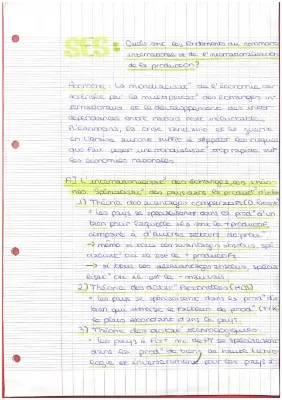 SES: Quels sont les fondements du commerce
international et de l'internationalisation
de la production?
Accroche: La mondialisat° de l'économie car-
actérisée par la multiplicat° des échanges in-
ternationaux et le développement des inter
dépendances entre nations reste inéluctable.
Néanmoins, la crise sanitaire et la guerre
en Ukraine auront suffit à rappeler les risques
que fait peser une mondialisat° trop rapide sur
les économies nationales.
A) L'internationalisat° des échanges,
Spécialisat° des pays dans la product°
1) Théorie des avantages comparatifs (D. Ricardo)
• les pays se spécialisent dans la prod° d'un
bien pour laquelle ils sont les + productifs
comparé à d'autres
→ même si tous ses avantages absolus, spé
cialisat° où il est le + productif
→ si tous ses désavantages absolus, spécia
lisat° où il est le - mauvais
2) Théorie des dotat° factorielles (HOS)
• les pays se spécialisent dans la prod° du
bien qui utilise le facteur de prod° (T/K)
le plus abondant dans le pays.
3) Théorie des dotat° technologiques
• les pays à fort se spécialisent
dans la prod° de biens de haute techno
logie et inversement pour les pays à